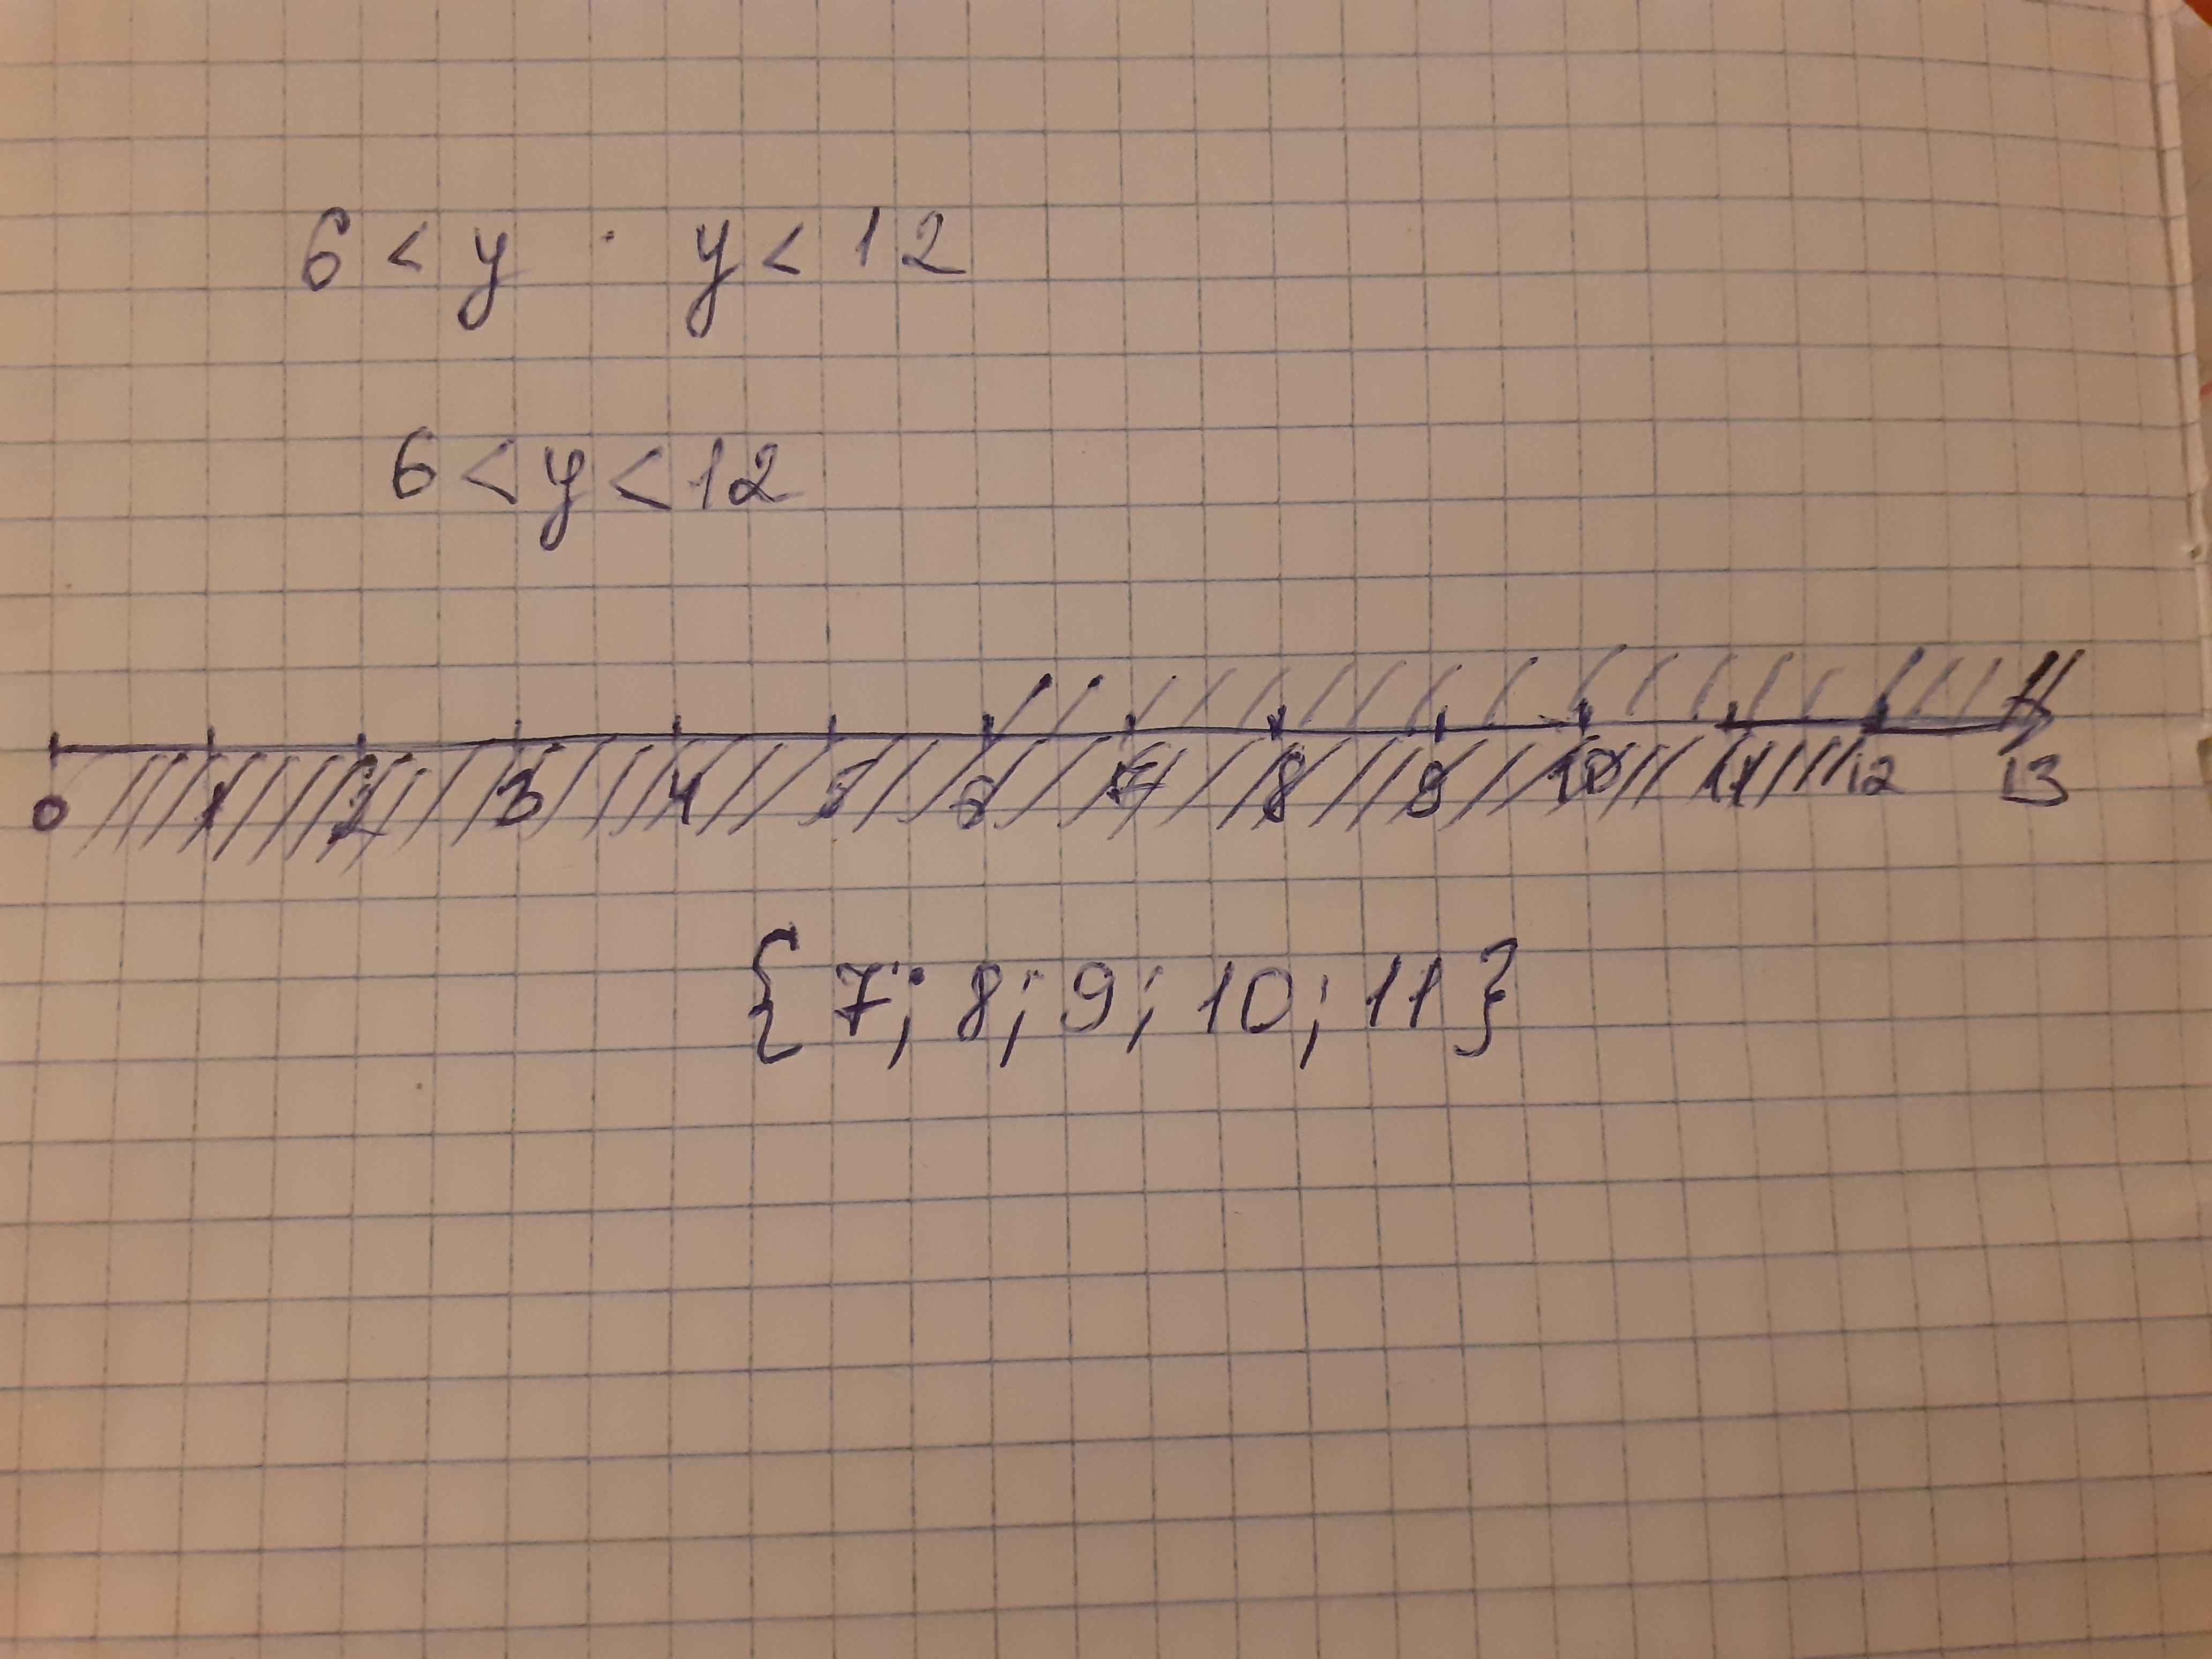 6 < y y < 12
6 < y < 12
0 1 2 3 4 5 6 7 8 9 10 11 12 13
{7; 8; 9; 10; 11}